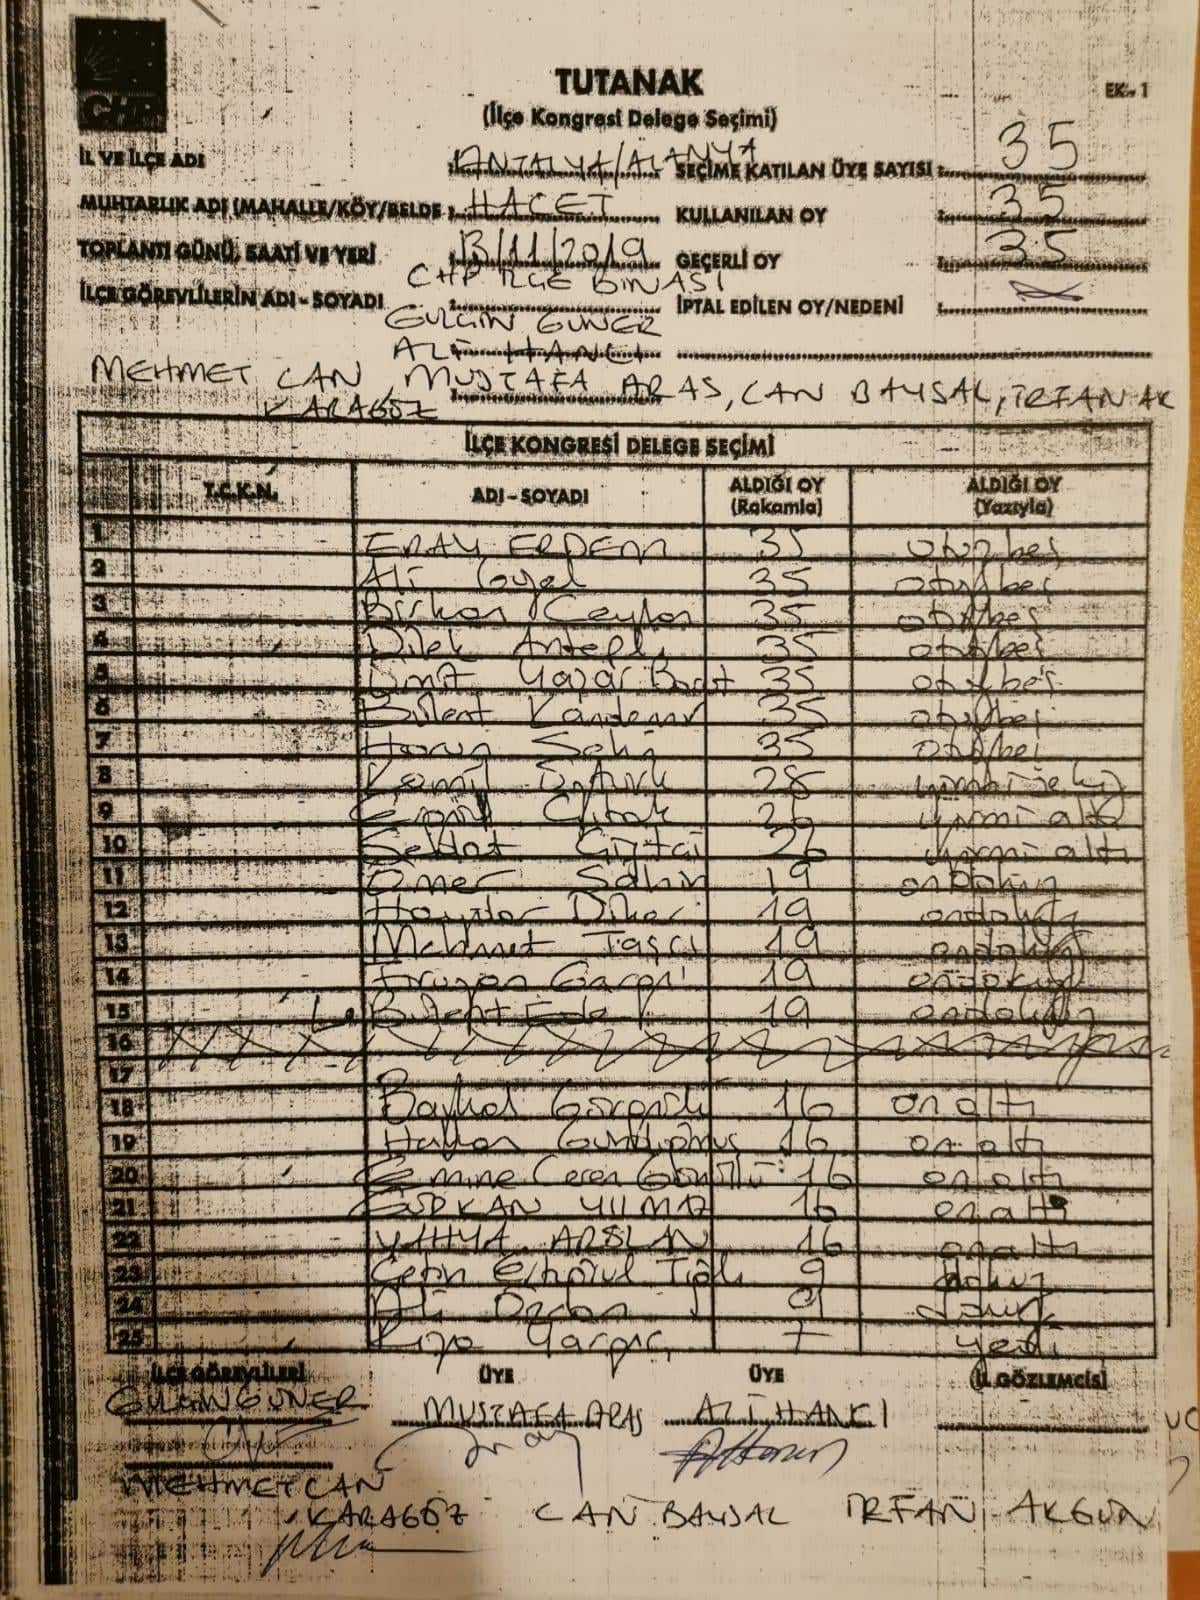 CHP
TUTANAK
EK - 1
(İlçe Kongresi Delege Seçimi)
İL VE İLÇE ADI ANTALYA/ALANYA SEÇİME KATILAN ÜYE SAYISI : 35
MUHTARLIK ADI (MAHALLE/KÖY/BELDE : HACET KULLANILAN OY : 35
TOPLANTI GÜNÜ, SAATİ VE YERİ 13/11/2019 GEÇERLİ OY : 35
CHP İLÇE BİNASI
İLÇE GÖREVLİLERİN ADI - SOYADI : İPTAL EDİLEN OY/NEDENİ :
GÜLÇİN GÜNER
ALİ HANCI
MEHMET CAN MUSTAFA ARAS, CAN BAYSAL, İRFAN AK
KARAGÖZ
İLÇE KONGRESİ DELEGE SEÇİMİ
T.C.K.N. ADI - SOYADI ALDIĞI OY (Rakamla) ALDIĞI OY (Yazıyla)
1 ERAY ERDEM 35 otuzbeş
2 Ali 35 otuzbeş
3 Birkan Ceylan 35 otuzbeş
4 Dilek Antepli 35 otuzbeş
5 Ümit Yazar Bozkt 35 otuzbeş
6 Bülent Kandemir 35 otuzbeş
7 Harun Şahin 35 otuzbeş
8 Kamil Öztürk 28 yirmi sekiz
9 Çıtak 26 yirmi altı
10 Sedat Çiftçi 26 yirmi altı
11 Ömer Şahin 19 ondokuz
12 Haydar Diker 19 ondokuz
13 Mehmet Taşçı 19 ondokuz
14 19 ondokuz
15 Bülent Eda 19 ondokuz
16
17
18 Baykal 16 on altı
19 Hakan Gündoğmuş 16 on altı
20 Emine Ceren Gönüllü 16 on altı
21 GÜRKAN YILMAZ 16 on altı
22 YAHYA ARSLAN 16 on altı
23 Çetin 9 dokuz
24 Ali Özcan 9 dokuz
25 Rıza Yargıç 7 yedi
İLÇE GÖREVLİLERİ ÜYE ÜYE (İL GÖZLEMCİSİ)
GÜLÇİN GÜNER MUSTAFA ARAS ALİ HANCI
MEHMET CAN
KARAGÖZ CAN BAYSAL İRFAN AKGÜN